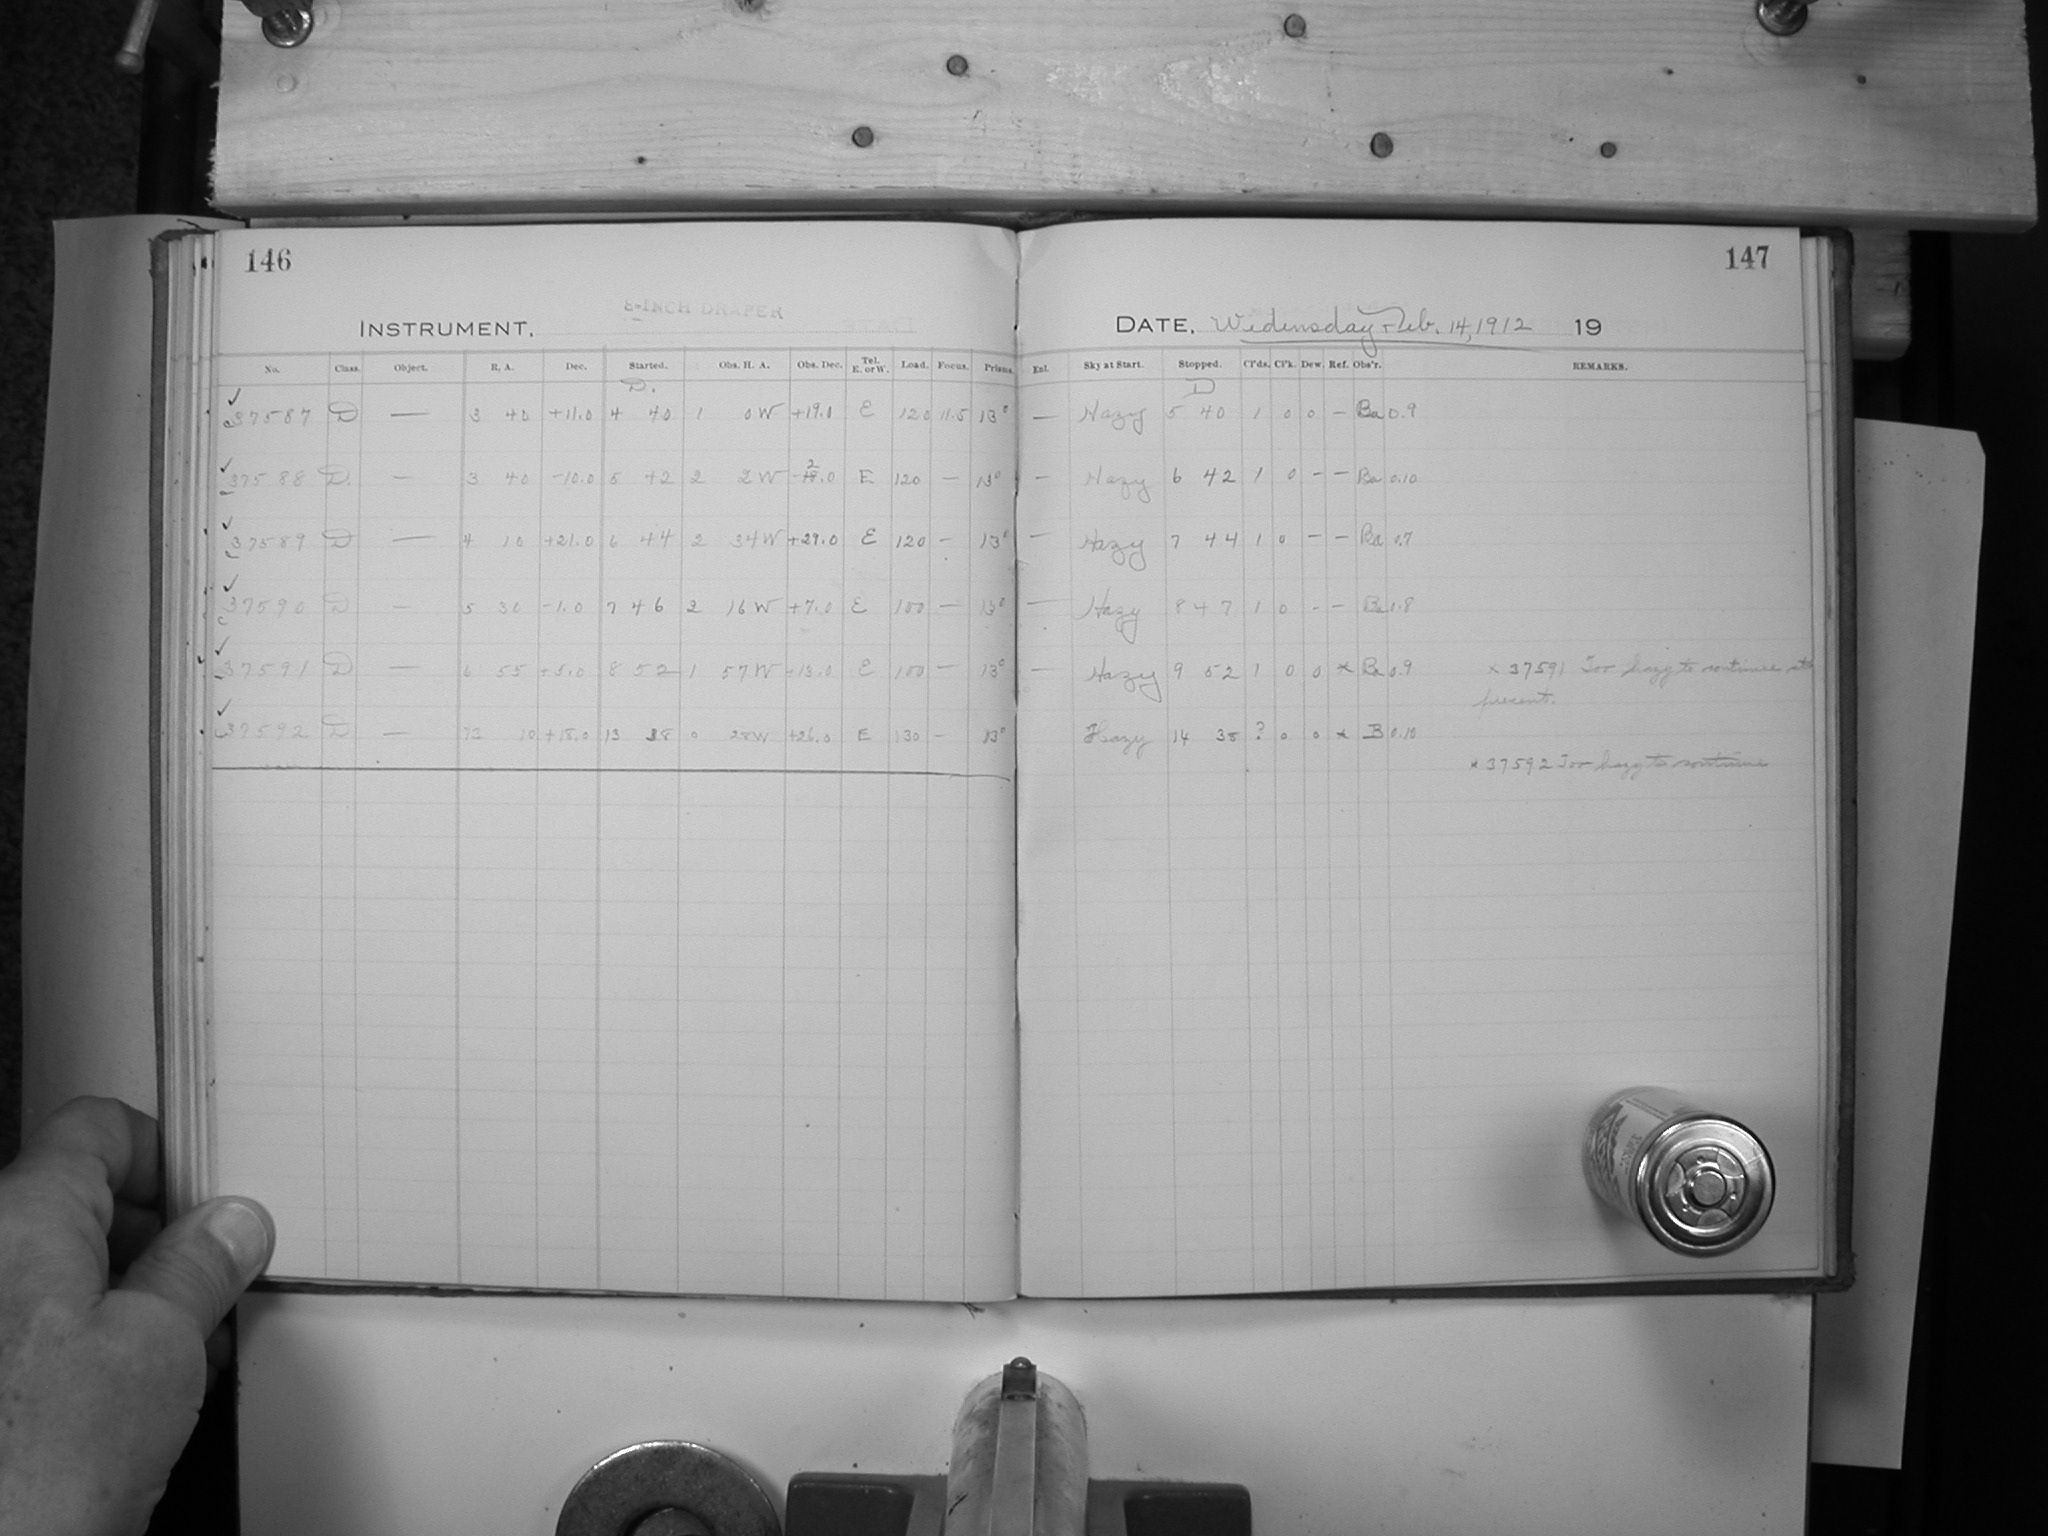 146
147
8-INCH DRAPER
INSTRUMENT.
DATE. Wedensday Feb. 14, 1912 19
No. Class. Object. R. A. Dec. Started. Obs. H. A. Obs. Dec. Tel. E. or W. Load. Focus. Prisms. Enl. Sky at Start. Stopped. Cl'ds. Cl'k. Dew. Ref. Obs'r. REMARKS.
D. D
37587 D — 3 40 +11.0 4 40 1 0W +19.0 E 120 11.5 13° — Hazy 5 40 1 0 0 – Ba 0.9
37588 D. — 3 40 -10.0 5 42 2 2W E 120 — 13° — Hazy 6 42 1 0 – – Ba 0.10
37589 D — 4 10 +21.0 6 44 2 34W +29.0 E 120 – 13° — Hazy 7 44 1 0 – – Ba 0.7
37590 D — 5 30 -1.0 7 46 2 16W +7.0 E 100 — 13° — Hazy 8 47 1 0 – – Ba 0.8
37591 D — 6 55 +5.0 8 52 1 57W +13.0 E 100 — 13° — Hazy 9 52 1 0 0 * Ba 0.9 × 37591 Too hazy to continue at
present.
37592 D — 10 +18.0 13 38 0 28W +26.0 E 130 – 13° Hazy 14 38 ? 0 0 * B 0.10
* 37592 Too hazy to continue